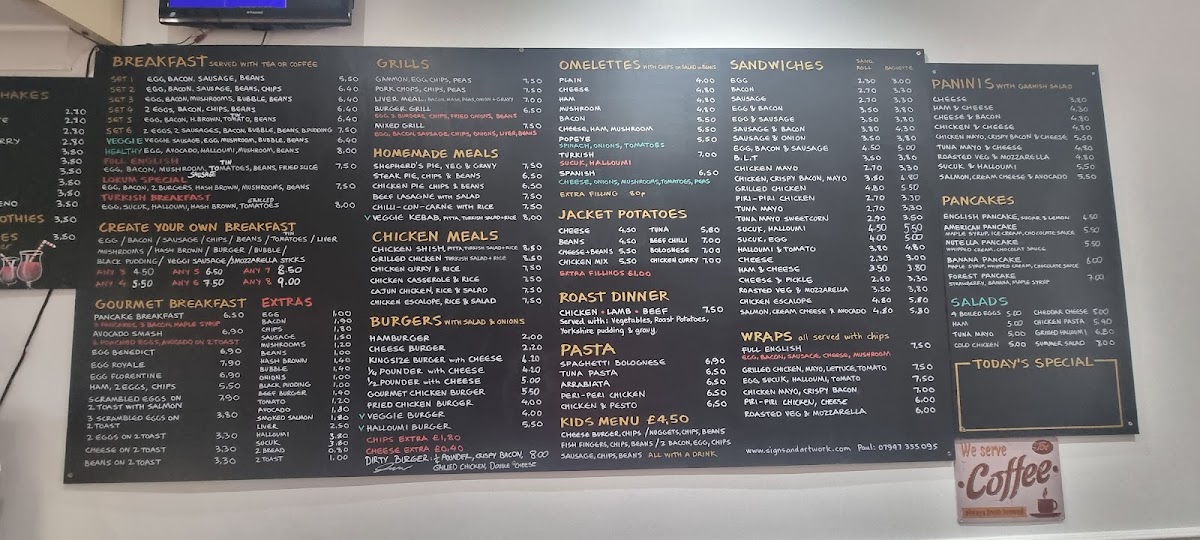 HAKES
2.70
2.70
RRY 2.80
3.50
3.50
3.50
3.50
ENO 3.50
OTHIES 3.50
3.50
BREAKFAST SERVED WITH TEA OR COFFEE
SET 1 EGG, BACON, SAUSAGE, BEANS 5.50
SET 2 EGG, BACON, SAUSAGE, BEANS, CHIPS 6.40
SET 3 EGG, BACON, MUSHROOMS, BUBBLE, BEANS 6.40
SET 4 2 EGGS, BACON, CHIPS, BEANS 6.40
SET 5 EGG, BACON, H.BROWN, TIN TOMATO, BEANS 6.40
SET 6 2 EGGS, 2 SAUSAGES, BACON, BUBBLE, BEANS, B.PUDDING 7.50
VEGGIE SAUSAGE, EGG, MUSHROOM, BUBBLE, BEANS 6.40
HEALTHY EGG, AVOCADO, HALLOUMI, MUSHROOM, BEANS 8.00
FULL ENGLISH
EGG, BACON, MUSHROOM, TIN TOMATOES, BEANS, FRIED SLICE 7.50
SAUSAGE
LORUM SPECIAL
EGG, BACON, 2 BURGERS, HASH BROWN, MUSHROOMS, BEANS 7.50
TURKISH BREAKFAST
EGG, SUCUK, HALLOUMI, HASH BROWN, GRILLED TOMATO 8.00
CREATE YOUR OWN BREAKFAST
EGG / BACON / SAUSAGE / CHIPS / BEANS / TIN TOMATOES / LIVER
MUSHROOMS / HASH BROWN / BURGER / BUBBLE /
BLACK PUDDING / VEGGI SAUSAGE / 3 MOZARELLA STICKS
ANY 3 4.50 ANY 5 6.50 ANY 7 8.50
ANY 4 5.50 ANY 6 7.50 ANY 8 9.00
GOURMET BREAKFAST
PANCAKE BREAKFAST 6.50
2 PANCAKES, 2 BACON, MAPLE SYRUP
AVOCADO SMASH 6.90
2 POACHED EGGS, AVOCADO ON 2 TOAST
EGG BENEDICT 6.90
EGG ROYALE 7.90
EGG FLORENTINE 6.90
HAM, 2 EGGS, CHIPS 5.50
SCRAMBLED EGGS ON 2 TOAST WITH SALMON 7.90
2 SCRAMBLED EGGS ON 2 TOAST 3.80
2 EGGS ON 2 TOAST 3.30
CHEESE ON 2 TOAST 3.30
BEANS ON 2 TOAST 3.30
EXTRAS
EGG 1.00
BACON 1.90
CHIPS 1.80
SAUSAGE 1.50
MUSHROOMS 1.20
BEANS 1.00
HASH BROWN 1.40
BUBBLE 1.40
ONIONS
BLACK PUDDING 1.00
BEEF BURGER 1.90
TOMATO 1.20
AVOCADO 1.80
SMOKED SALMON 1.80
LIVER 2.50
HALLOUMI 3.80
SUCUK 3.80
2 BREAD 0.80
2 TOAST 1.00
GRILLS
GAMMON, EGG, CHIPS, PEAS 7.50
PORK CHOPS, CHIPS, PEAS 7.50
LIVER MEAL, BACON, MASH, PEAS, ONION + GRAVY 7.00
BURGER GRILL 6.50
EGG, 2 BURGERS, CHIPS, FRIED ONIONS, BEANS
MIXED GRILL 7.50
EGG, BACON, SAUSAGE, CHIPS, ONIONS, LIVER, BEANS
HOMEMADE MEALS
SHEPHERD'S PIE, VEG & GRAVY 7.50
STEAK PIE, CHIPS & BEANS 6.50
CHICKEN PIE CHIPS & BEANS 6.50
BEEF LASAGNE WITH SALAD 7.50
CHILLI-CON-CARNE WITH RICE 7.50
V VEGGIE KEBAB, PITTA, TURKISH SALAD + RICE 8.00
CHICKEN MEALS
CHICKEN SHISH, PITTA, TURKISH SALAD + RICE 8.50
GRILLED CHICKEN TURKISH SALAD + RICE 8.50
CHICKEN CURRY & RICE 7.50
CHICKEN CASSEROLE & RICE 7.50
CAJUN CHICKEN, RICE & SALAD 7.50
CHICKEN ESCALOPE, RICE & SALAD 7.50
BURGERS WITH SALAD & ONIONS
HAMBURGER 2.00
CHEESE BURGER 2.20
KINGSIZE BURGER WITH CHEESE 4.20
¼ POUNDER WITH CHEESE 4.20
½ POUNDER WITH CHEESE 5.00
GOURMET CHICKEN BURGER 5.50
FRIED CHICKEN BURGER 4.00
V VEGGIE BURGER 4.00
V HALLOUMI BURGER 5.50
CHIPS EXTRA £1.80
CHEESE EXTRA £0.40
DIRTY BURGER: ½ POUNDER, CRISPY BACON, 8.00
GRILLED CHICKEN, DOUBLE CHEESE
OMELETTES WITH CHIPS OR SALAD OR BEANS
PLAIN 4.00
CHEESE 4.80
HAM 4.80
MUSHROOM 4.80
BACON 5.50
CHEESE, HAM, MUSHROOM 5.50
POPEYE 5.50
SPINACH, ONIONS, TOMATOES
TURKISH 7.00
SUCUK, HALLOUMI
SPANISH 6.50
CHEESE, ONIONS, MUSHROOMS, TOMATOES, PEAS
EXTRA FILLING 80p
JACKET POTATOES
CHEESE 4.50 TUNA 5.80
BEANS 4.50 BEEF CHILLI 7.00
CHEESE + BEANS 5.50 BOLOGNESE 7.00
CHICKEN MIX 5.50 CHICKEN CURRY 7.00
EXTRA FILLINGS £1.00
ROAST DINNER
CHICKEN • LAMB • BEEF 7.50
Served with: Vegetables, Roast Potatoes,
Yorkshire pudding & gravy.
PASTA
SPAGHETTI BOLOGNESE 6.90
TUNA PASTA 6.50
ARRABIATA 6.50
PERI-PERI CHICKEN 6.50
CHICKEN & PESTO 6.50
KIDS MENU £4.50
CHEESE BURGER, CHIPS / NUGGETS, CHIPS, BEANS
FISH FINGERS, CHIPS, BEANS / 2 BACON, EGG, CHIPS
SAUSAGE, CHIPS, BEANS ALL WITH A DRINK
SANDWICHES SAND. ROLL BAGUETTE
EGG 2.30 3.00
BACON 2.70 3.30
SAUSAGE 2.70 3.30
EGG & BACON 3.50 3.80
EGG & SAUSAGE 3.50 3.80
SAUSAGE & BACON 3.80 4.30
SAUSAGE & ONION 3.50 3.80
EGG, BACON & SAUSAGE 4.50 5.00
B.L.T 3.50 3.80
CHICKEN MAYO 2.70 3.30
CHICKEN, CRISPY BACON, MAYO 3.80 4.80
GRILLED CHICKEN 4.80 5.50
PIRI-PIRI CHICKEN 2.70 3.30
TUNA MAYO 2.70 3.30
TUNA MAYO SWEETCORN 2.90 3.50
SUCUK, HALLOUMI 4.50 5.50
SUCUK, EGG 4.00 5.00
HALLOUMI & TOMATO 3.80 4.80
CHEESE 2.30 3.00
HAM & CHEESE 3.50 3.80
CHEESE & PICKLE 2.60 3.30
ROASTED VEG & MOZZARELLA 3.50 3.80
CHICKEN ESCALOPE 4.80 5.80
SALMON, CREAM CHEESE & AVOCADO 4.80 5.80
WRAPS all served with chips
FULL ENGLISH 7.50
EGG, BACON, SAUSAGE, CHEESE, MUSHROOM
GRILLED CHICKEN, MAYO, LETTUCE, TOMATO 7.50
EGG, SUCUK, HALLOUMI, TOMATO 7.50
CHICKEN MAYO, CRISPY BACON 7.00
PIRI-PIRI CHICKEN, CHEESE 6.00
ROASTED VEG & MOZZARELLA 6.00
www.signsandartwork.com Paul: 07947 335095
PANINIS WITH GARNISH SALAD
CHEESE 3.80
HAM & CHEESE 4.30
CHEESE & BACON 4.80
CHICKEN & CHEESE 4.30
CHICKEN MAYO, CRISPY BACON & CHEESE 5.50
TUNA MAYO & CHEESE 4.80
ROASTED VEG & MOZZARELLA 4.80
SUCUK & HALLOUMI 5.50
SALMON, CREAM CHEESE & AVOCADO 5.50
PANCAKES
ENGLISH PANCAKE, SUGAR & LEMON 4.50
AMERICAN PANCAKE 5.50
MAPLE SYRUP, ICE CREAM, CHOCOLATE SAUCE
NUTELLA PANCAKE 5.50
WHIPPED CREAM, CHOCOLATE SAUCE
BANANA PANCAKE 6.00
MAPLE SYRUP, WHIPPED CREAM, CHOCOLATE SAUCE
FOREST PANCAKE 7.00
STRAWBERRY, BANANA, MAPLE SYRUP
SALADS
4 BOILED EGGS 5.00 CHEDDAR CHEESE 5.00
HAM 5.00 CHICKEN PASTA 5.90
TUNA MAYO 5.00 GRILLED HALOUMI 6.80
COLD CHICKEN 5.00 SUMMER SALAD 8.00
TODAY'S SPECIAL
We serve
Coffee
always fresh brewed